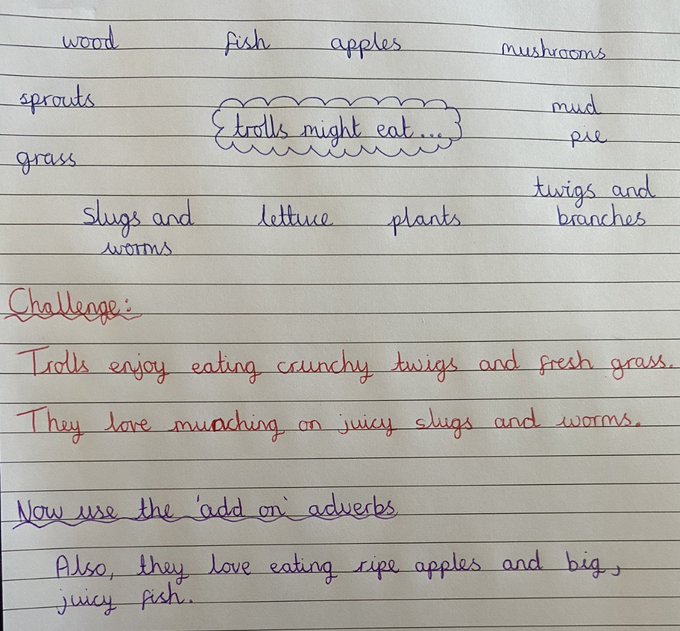 wood fish apples mushrooms
sprouts mud
trolls might eat... pie
grass
twigs and
slugs and lettuce plants branches
worms
Challenge:
Trolls enjoy eating crunchy twigs and fresh grass.
They love munching on juicy slugs and worms.
Now use the 'add on' adverbs
Also, they love eating ripe apples and big,
juicy fish.